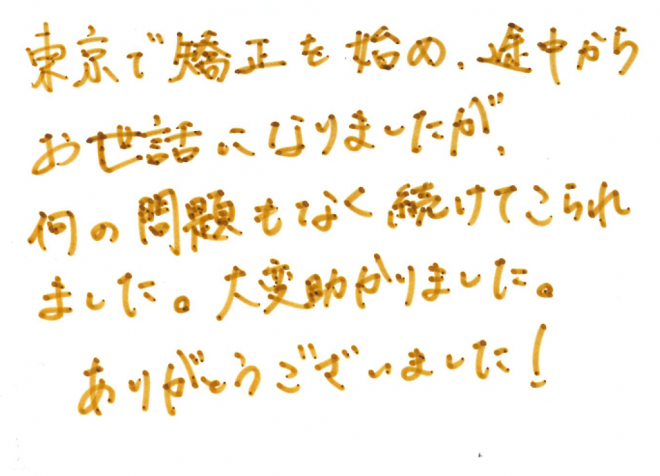 東京で矯正を始め、途中から
お世話になりましたが、
何の問題もなく続けてこられ
ました。大変助かりました。
ありがとうございました!